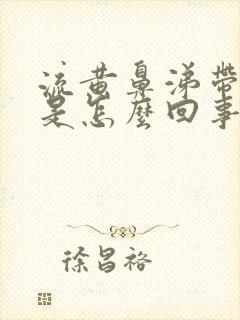 流黄鼻涕带
是怎麼回事
徐昌裕